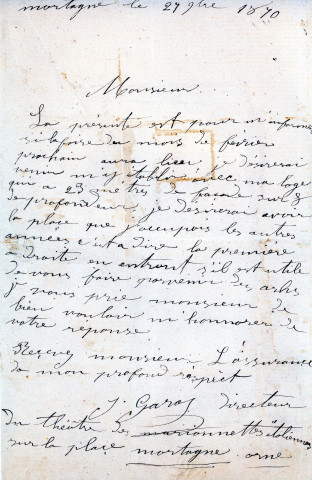 mortagne le 27 9bre 1870
Monsieur
La présente est pour m'informer
si la foire du mois de fevrier
prochain aura lieu je désirerai
venir m'y établir avec ma loge
qui a 23 mètres de façade sur 8
de profondeur je desirerai avoir
la place que j'occupois les autres
années c'est a dire la première
a droite en entrant s'il est utile
de vous faire parvenir des arhs
je vous prie monsieur de
bien vouloir m'honnorer de
votre reponse
Recevez monsieur L'assurance
de mon profond respect
J. Garof directeur
du théâtre des marionnettes italiennes
sur la place mortagne orne